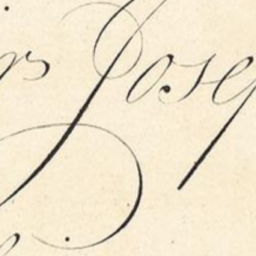 rs Josep